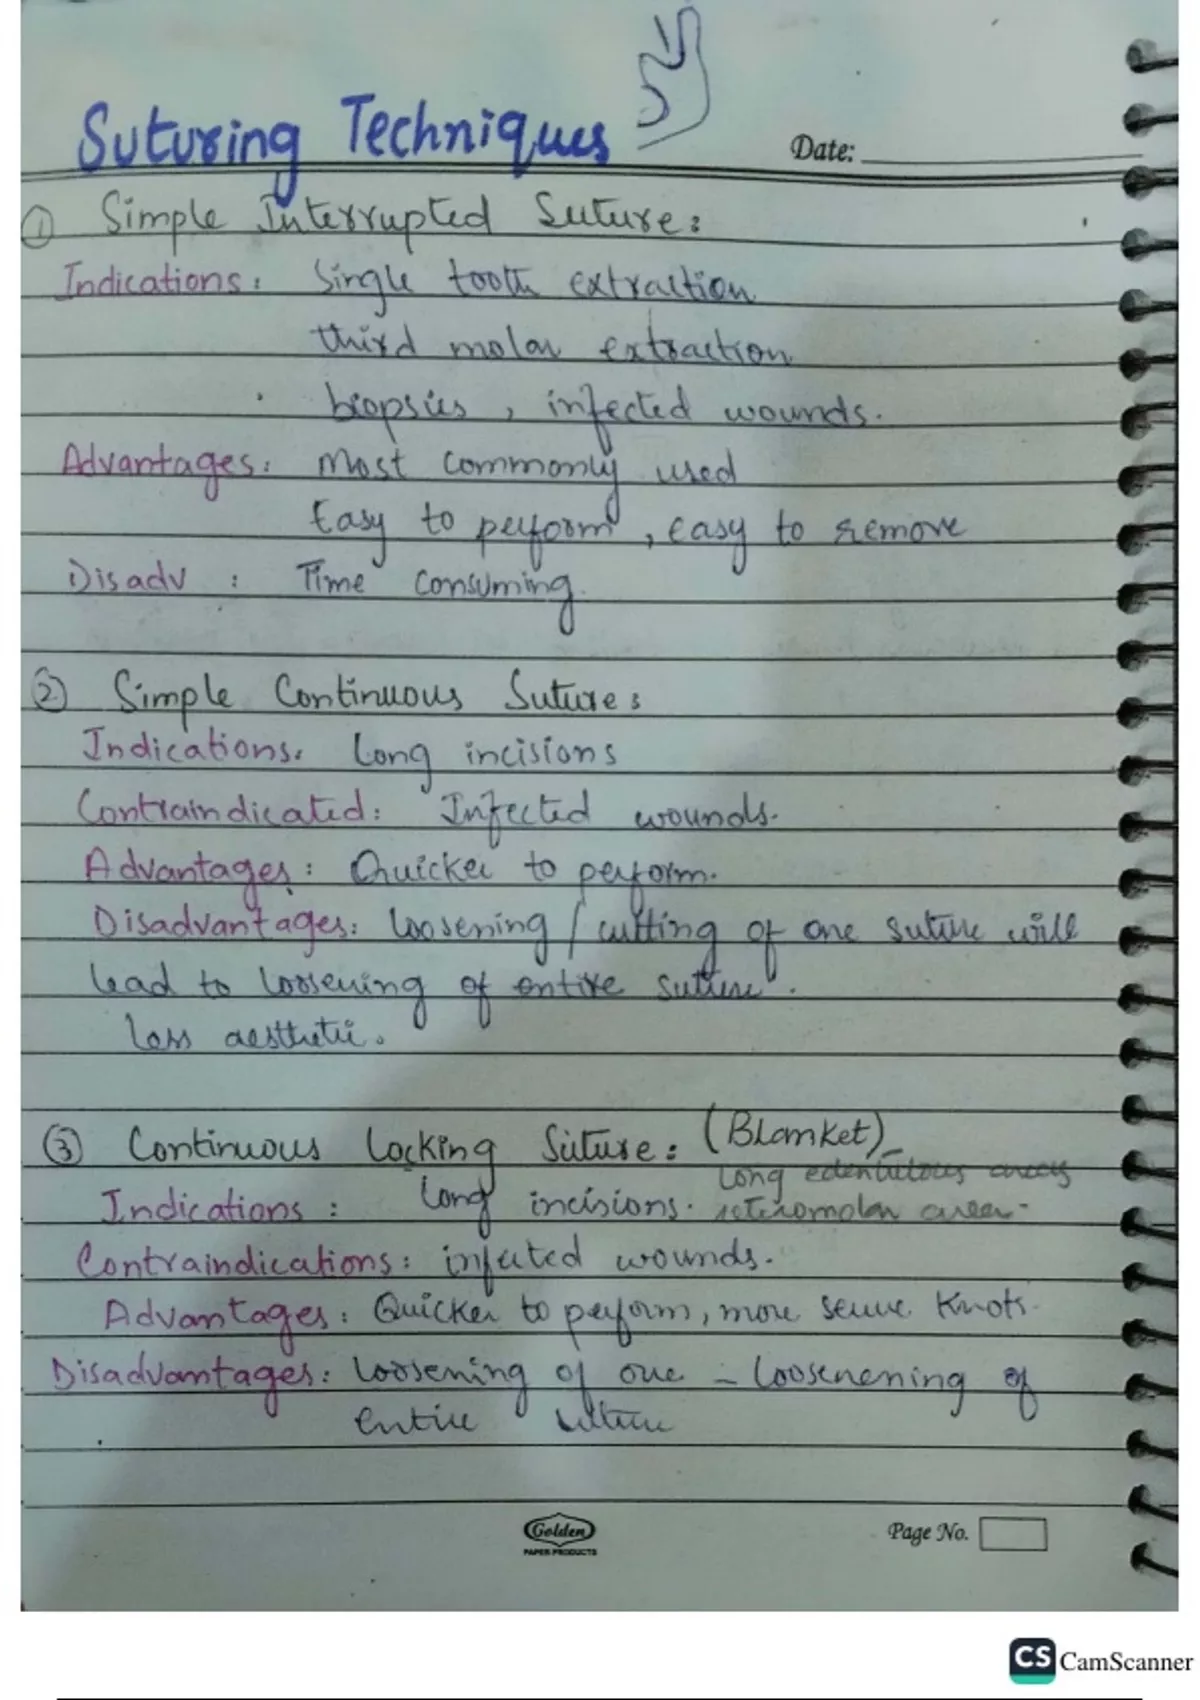 Suturing Techniques
Date:
① Simple Interrupted Suture:
Indications: Single tooth extraction
third molar extraction
biopsies, infected wounds.
Advantages: Most commonly used
Easy to perform, easy to remove
Disadv : Time consuming.
② Simple Continuous Suture:
Indications: Long incisions
Contraindicated: Infected wounds.
Advantages: Quicker to perform.
Disadvantages: loosening/cutting of one suture will
lead to loosening of entire suture.
less aesthetic.
③ Continuous Locking Suture: (Blanket)
Long edentulous areas
Indications : Long incisions. retromolar area.
Contraindications: infected wounds.
Advantages: Quicker to perform, more secure knots.
Disadvantages: loosening of one – loosenening of
entire suture
Golden
PAPER PRODUCTS
Page No.
CS CamScanner